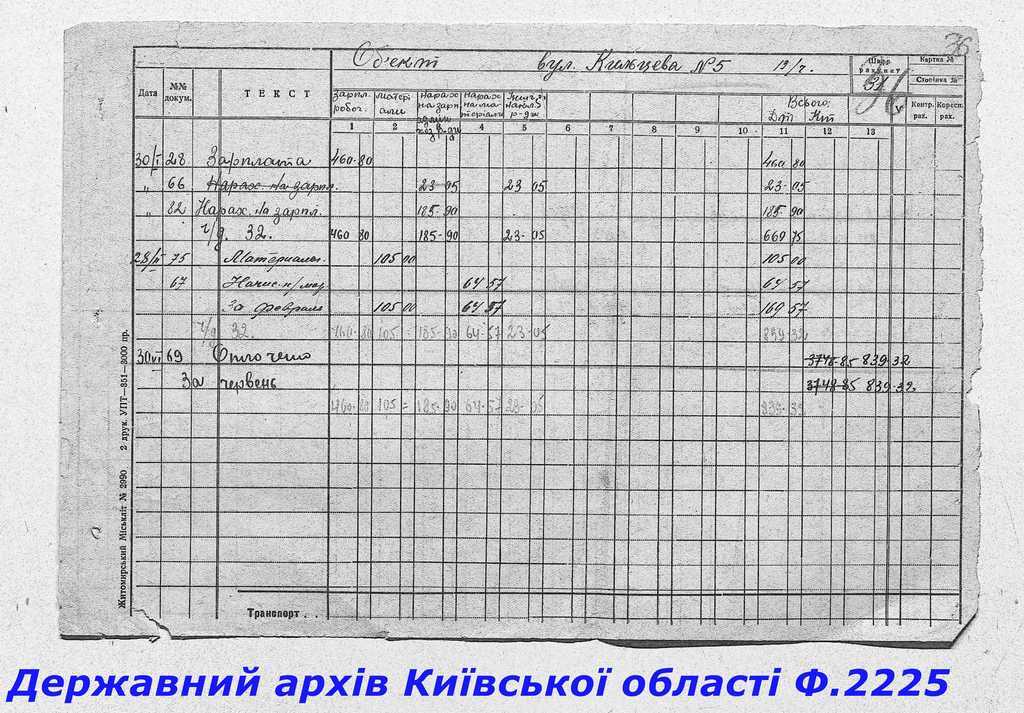 36
Об'єкт вул. Кильцева №5 19/г.
Шифр рахунку 31
Картка №
Сторінка №
Дата №№ докум. ТЕКСТ зарпл. робоч. матер али нарах на зарп. нарах на ма теріали Всього: Дт Кт Контр. рах. Коресп. рах.
1 2 3 4 5 6 7 8 9 10 11 12 13
30/І 28 Зарплата 460-80 460 80
" 66 Нарах. на зарпл. 23-05 23 05 23-05
" 82 Нарах. на зарпл. 185-90 185-90
ч/д. 32. 460 80 185-90 23-05 669 75
28/ІІ 75 Материалы. 105 00 105 00
67 64 57 64 57
За февраль 105 00 64 57 169 57
ч/д 32. 460-80 105 = 185-90 64-57 23-05 839-32
30/VI 69 Оплочено 3748-85 839-32
За червень 3748-85 839-32.
460-80 105 = 185-90 64-57 23-05 839-32
Транспорт . .
Житомирський Міськліт № 2990 2 друк. УПТ—351—3000 пр.
Державний архів Київської області Ф.2225